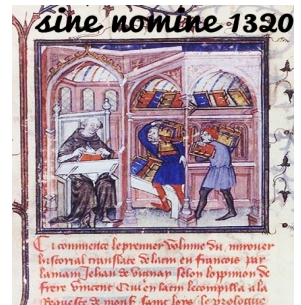 sine nomine 1320
Ci commence le premier volume du mirouer
historial translate de latin en francois par
Jehan de vignay selon loppinion de
frere vincent Qui en latin le compilla a la
requeste de mons saint loys